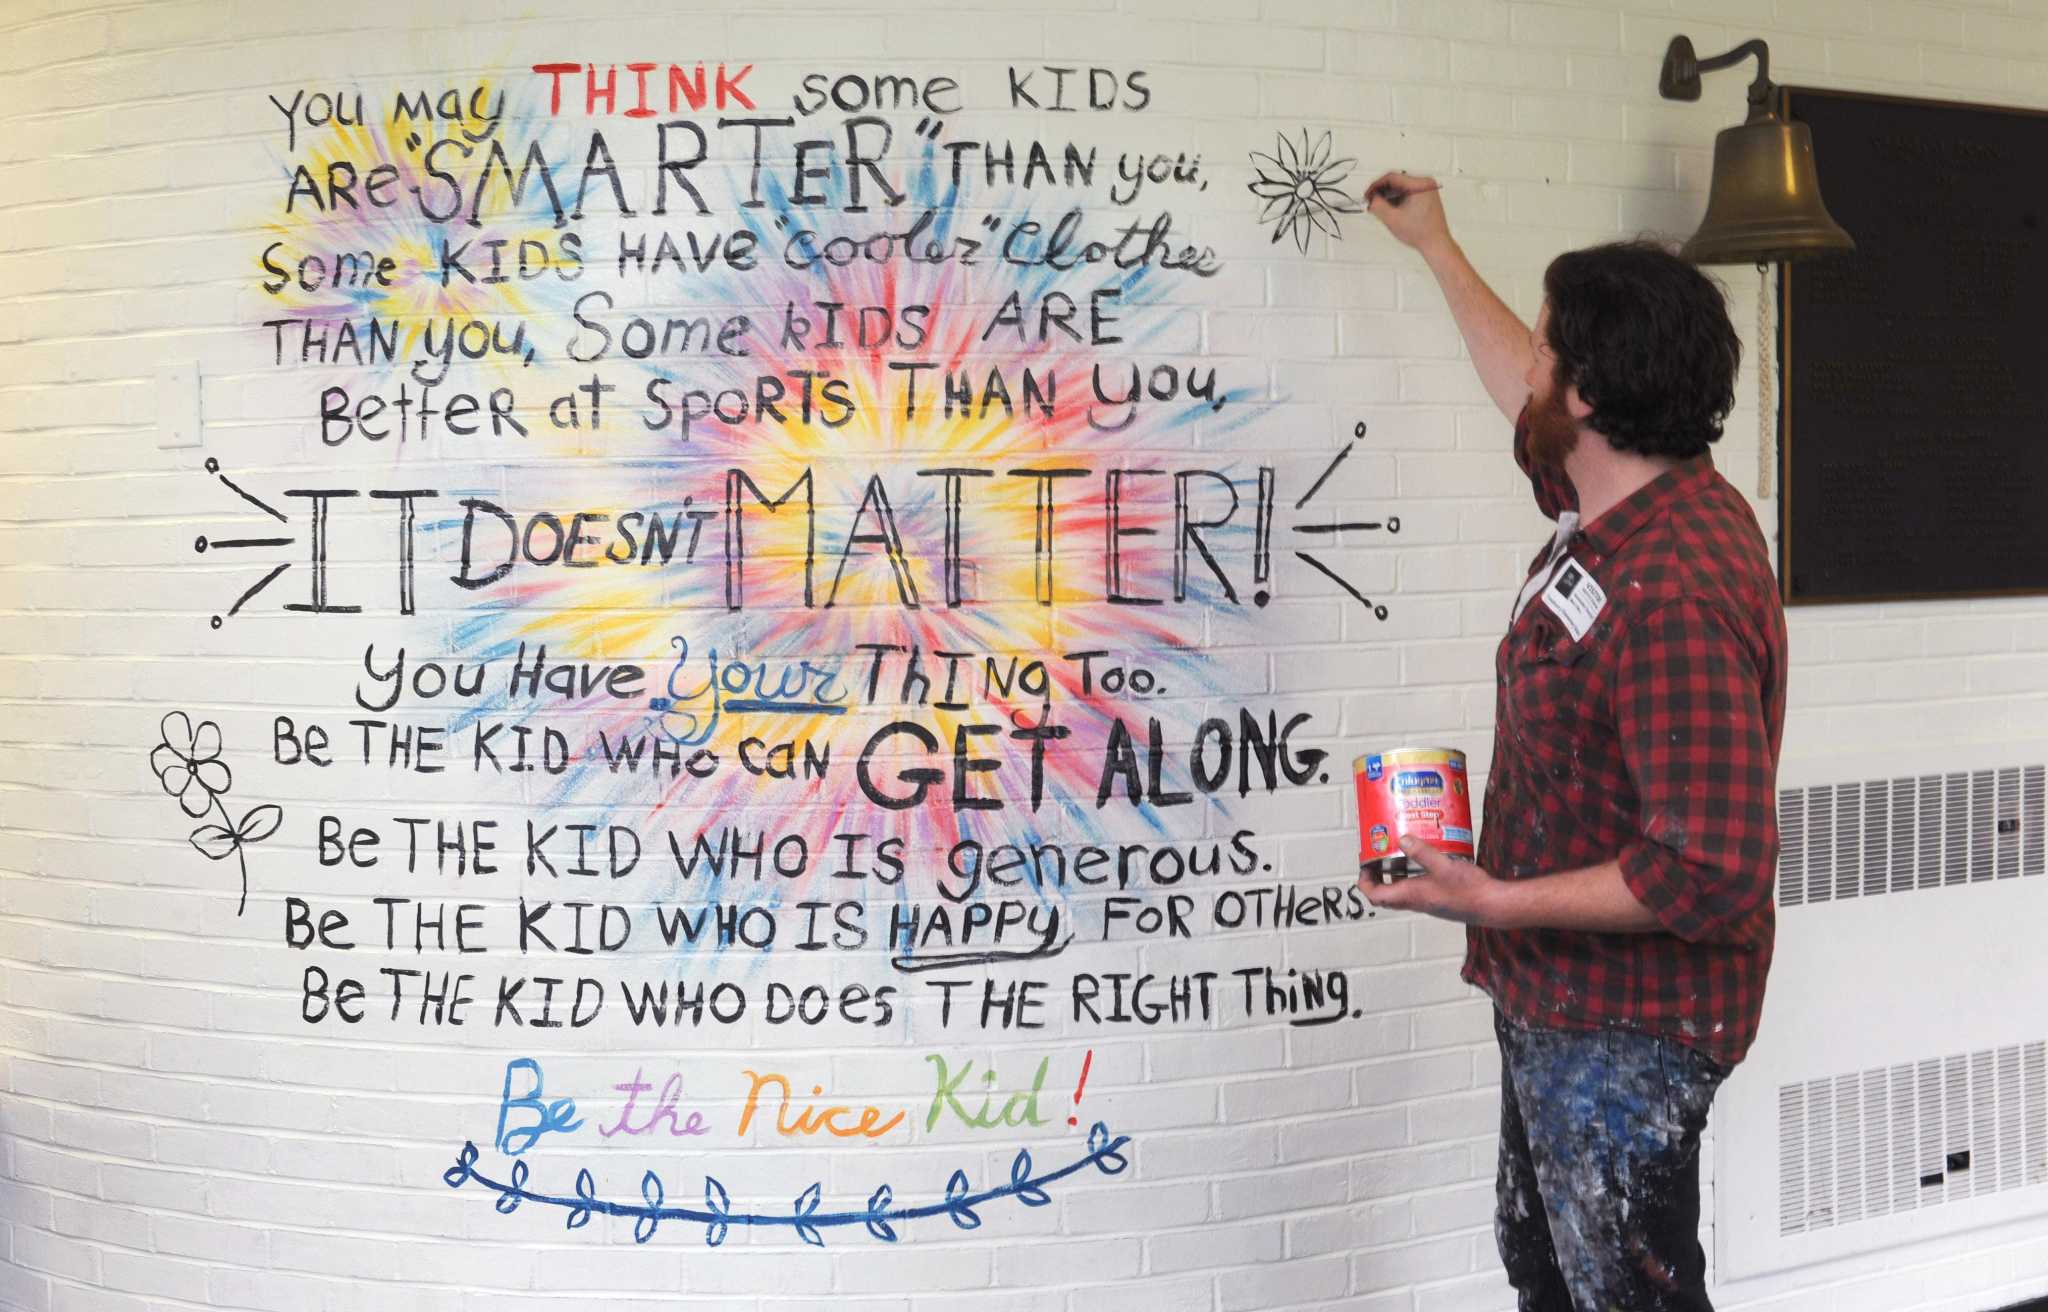 You may THINK some KIDS
ARe "SMARTeR" THAN you,
Some KIDS HAVe "cooler" Clothes
THAN you, Some kIDS ARE
BetteR at SpORTS THAN you,
IT DOESN'T MATTER!
you Have Your ThINg Too.
Be THE KID WHo caN GET ALONG.
Be THE KID WHO IS generous.
Be THE KID WHO IS HAPPy FOR OTHeRS.
Be THE KID WHO DOes THE RIGHT Thing.
Be the Nice Kid!
Enfagrow
Toddler
Next Step
VISITOR